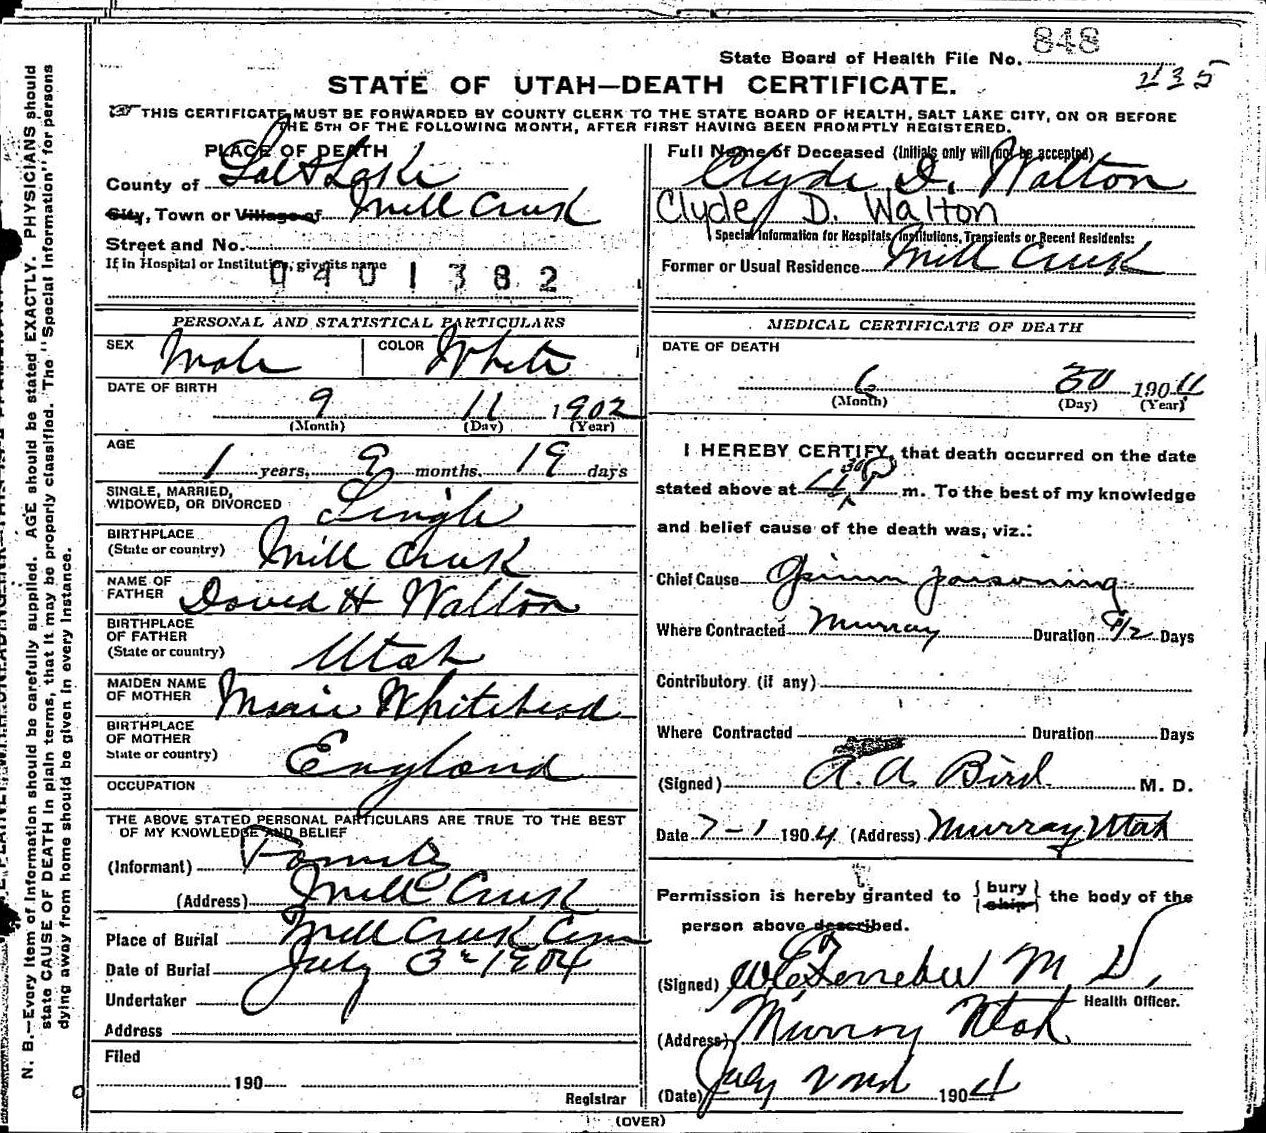 State Board of Health File No. 848
235
STATE OF UTAH—DEATH CERTIFICATE.
THIS CERTIFICATE MUST BE FORWARDED BY COUNTY CLERK TO THE STATE BOARD OF HEALTH, SALT LAKE CITY, ON OR BEFORE
THE 5TH OF THE FOLLOWING MONTH, AFTER FIRST HAVING BEEN PROMPTLY REGISTERED.
PLACE OF DEATH
County of Salt Lake
City, Town or Village of Mill Creek
Street and No.
If in Hospital or Institution, give its name
0401382
PERSONAL AND STATISTICAL PARTICULARS
SEX Male COLOR White
DATE OF BIRTH
9 11 1902
(Month) (Day) (Year)
AGE
1 years, 9 months. 19 days
SINGLE, MARRIED,
WIDOWED, OR DIVORCED Single
BIRTHPLACE
(State or country) Mill Creek
NAME OF
FATHER David H Walton
BIRTHPLACE
OF FATHER
(State or country) Utah
MAIDEN NAME
OF MOTHER Whitehead
BIRTHPLACE
OF MOTHER
State or country) England
OCCUPATION
THE ABOVE STATED PERSONAL PARTICULARS ARE TRUE TO THE BEST
OF MY KNOWLEDGE AND BELIEF
(Informant) Family
(Address) Mill Creek
Place of Burial Mill Creek Cem
Date of Burial July 3 1904
Undertaker
Address
Filed
190
Registrar
Full Name of Deceased (Initials only will not be accepted)
Clyde D. Walton
Clyde D. Walton
Special Information for Hospitals, Institutions, Transients or Recent Residents:
Former or Usual Residence Mill Creek
MEDICAL CERTIFICATE OF DEATH
DATE OF DEATH
6 30 1904
(Month) (Day) (Year)
I HEREBY CERTIFY, that death occurred on the date
stated above at 4 30 P m. To the best of my knowledge
and belief cause of the death was, viz.:
Chief Cause Opium poisoning
Where Contracted Murray Duration 1/2 Days
Contributory (if any)
Where Contracted Duration Days
(Signed) A. A. Bird M. D.
Date 7-1 1904 (Address) Murray Utah
Permission is hereby granted to {bury
{ship} the body of the
person above described.
(Signed) M D,
Health Officer.
(Address) Murray Utah
(Date) July 2nd 1904
(OVER)
N. B.—Every item of information should be carefully supplied. AGE should be stated EXACTLY. PHYSICIANS should
state CAUSE OF DEATH in plain terms, that it may be properly classified. The "Special Information" for persons
dying away from home should be given in every instance.